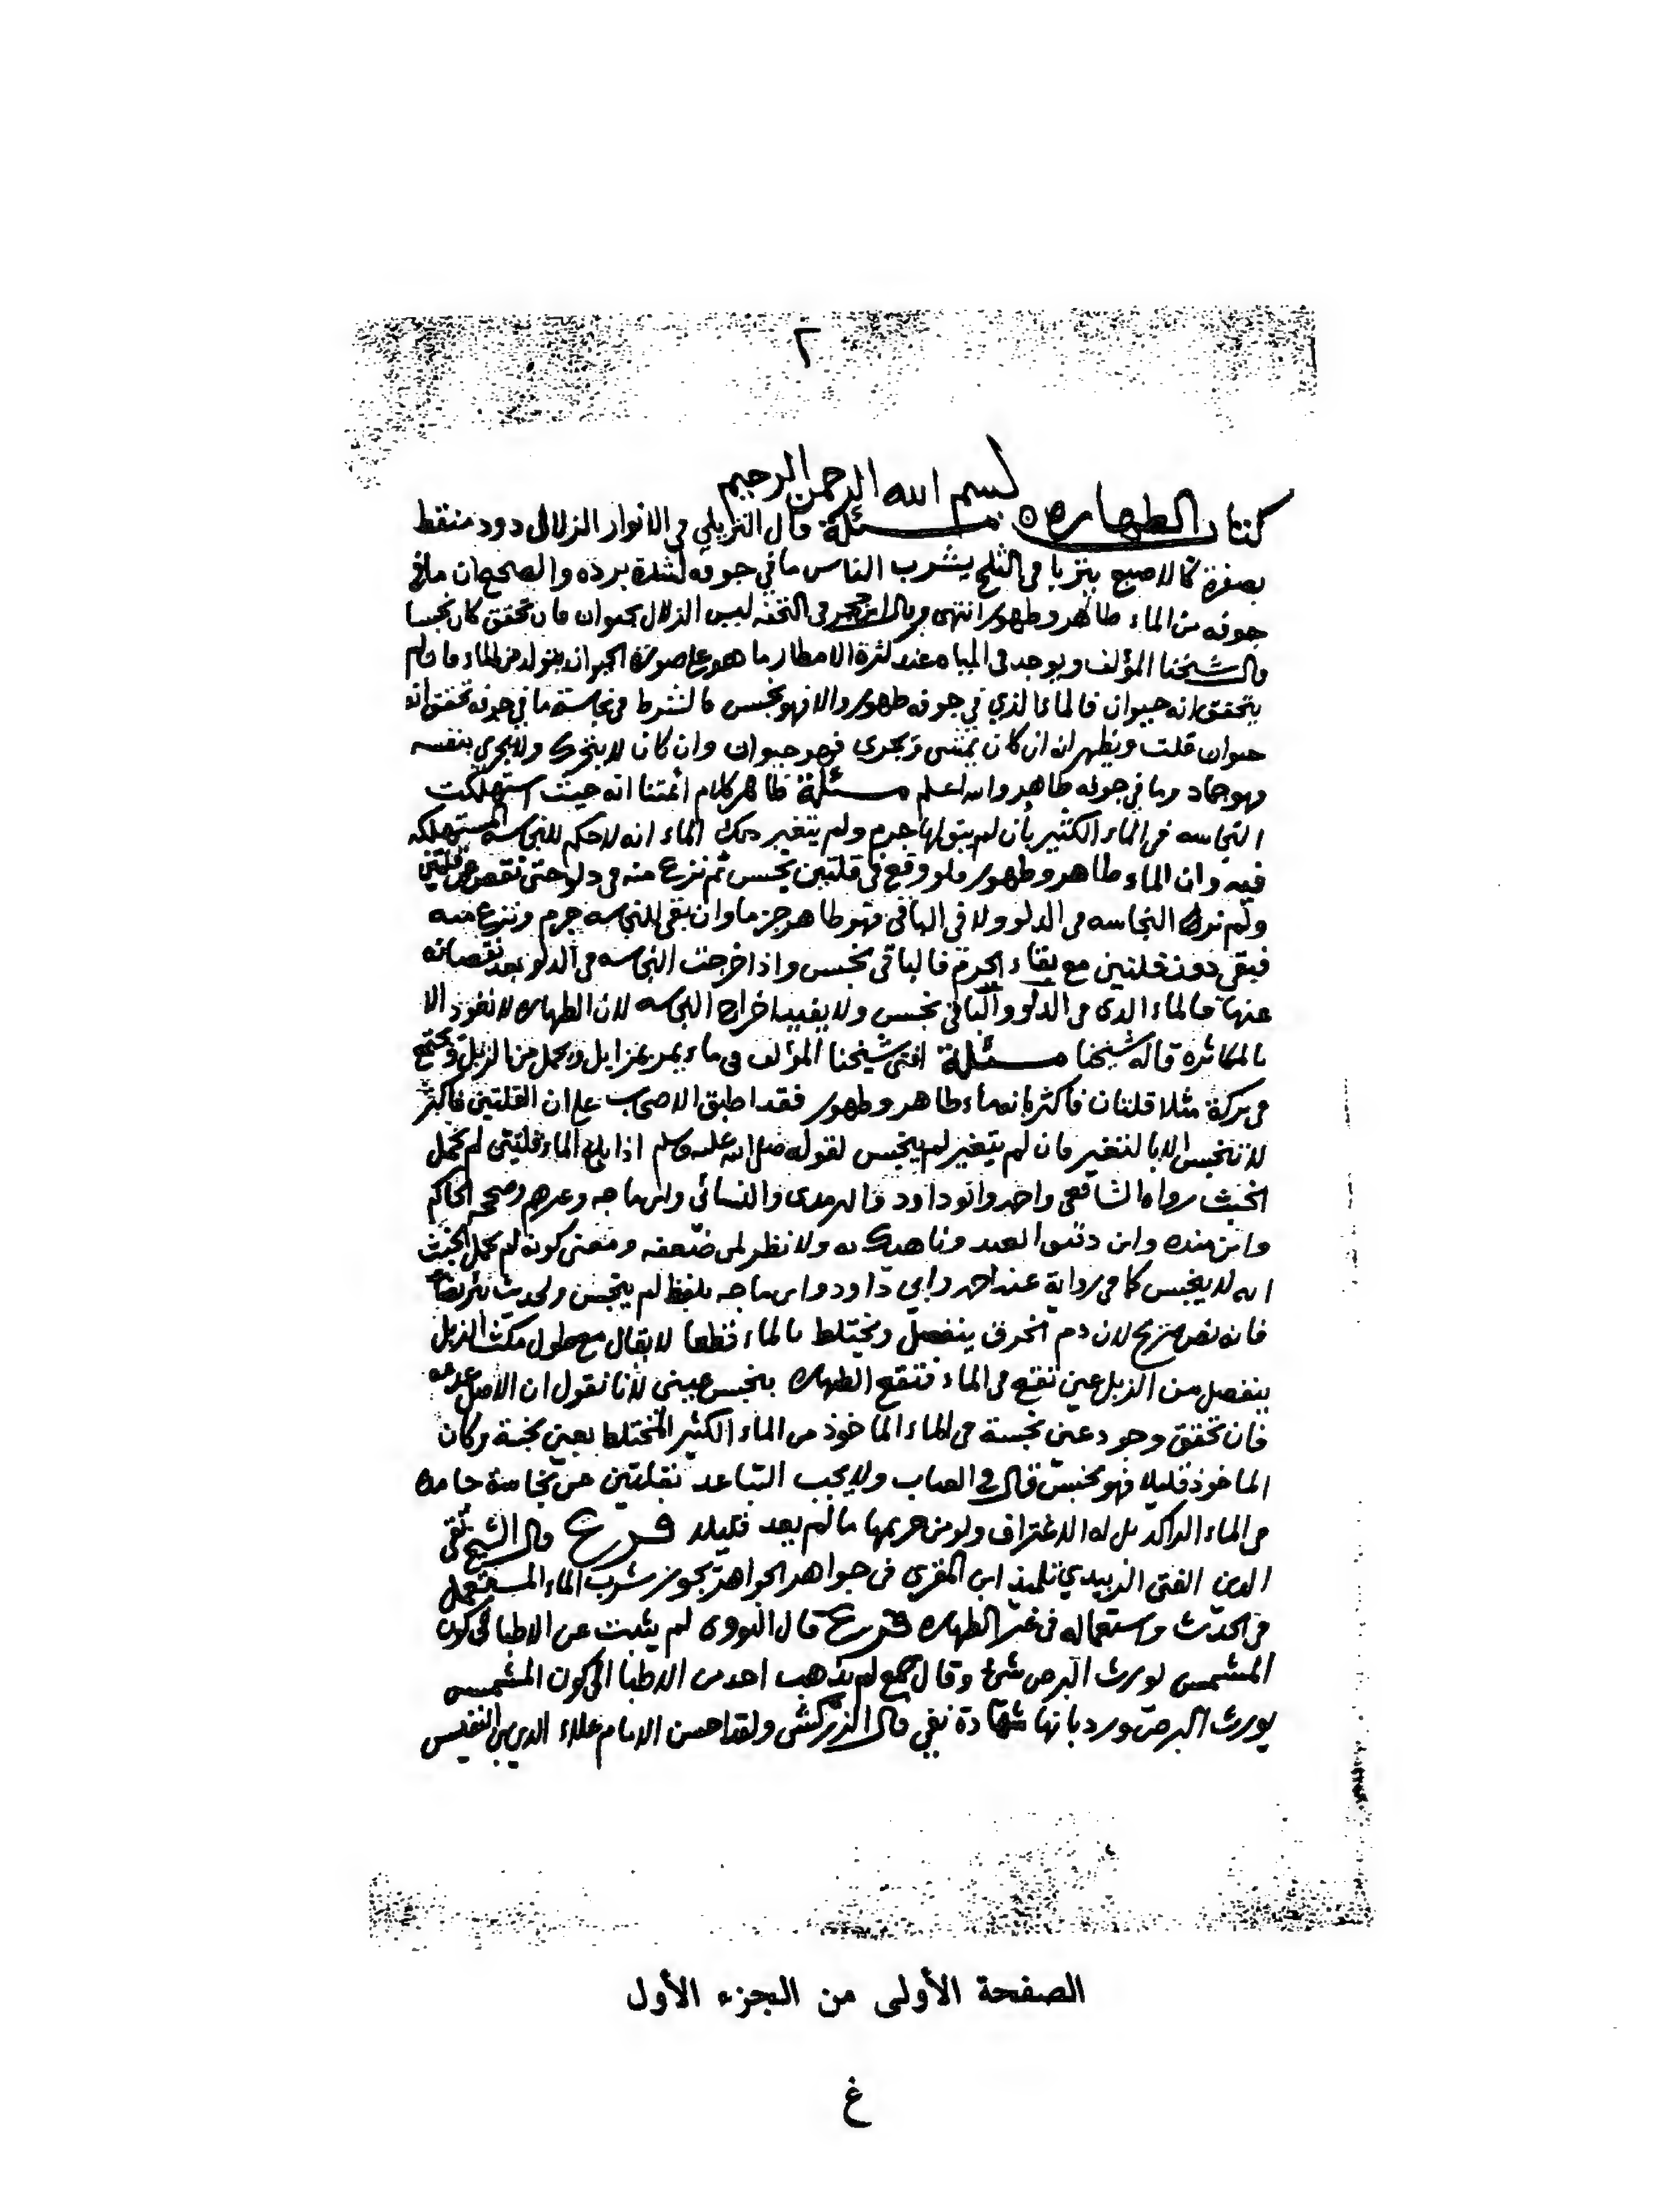 ٢
بسم الله الرحمن الرحيم
كتاب الطهاره مسئلة قال النزيلي في الانوار الزلالى دود منقط
بصفرة كالاصبع يتربا فى الثلج يشرب الناس ما في جوفه لشدة برده والصحيح ان ما في
جوفه من الماء طاهر وطهور انتهى وقال ابن حجر في التحفه ليس الزلال بحيوان فان تحقق كان نجسا
قال شيخنا المؤلف ويوجد فى المياه عند كثرة الامطار ما هو على صورة الحيوان يتولد من الماء فما لم
يتحقق انه حيوان فالماء الذي في جوفه طهور والا فهو نجس فالشرط في نجاسة ما في جوفه تحقق انه
حيوان قلت ويظهر انه ان كان يمشى ويجرى فهو حيوان وان كان لا يتحرك ولا يجرى بنفسه
فهو جماد وما في جوفه طاهر والله اعلم مسئلة ظاهر كلام ائمتنا انه حيث استهلكت
النجاسه فى الماء الكثير بأن لم يبق لها جرم ولم يتغير بذلك الماء انه لا حكم للنجاسه المستهلكه
فيه وان الماء طاهر وطهور فلو وقع في قلتين نجس ثم نزع منه في دلو حتى نقص عن قلتين
ولم نر النجاسه في الدلو ولا في الباقي فهو طاهر جزما وان بقي للنجاسه جرم ونزع منه
فبقي دون قلتين مع بقاء الجرم فالباقى نجس واذا خرجت النجاسه في الدلو بعد نقصانه
عنها فالماء الذى في الدلو والباقى نجس ولا يفيد اخراج النجاسه لان الطهاره لا تعود الا
بالمكاثره قاله شيخنا مسئلة افتى شيخنا المؤلف في ماء يمر بمزابل ويحمل من الزبل ويجتمع
في بركة مثلا قلتان فاكثر بانه ماء طاهر وطهور فقد اطبق الاصحاب على ان القلتين فاكثر
لا تنجس الا بالتغير فان لم يتغير لم ينجس لقوله صلى الله عليه وسلم اذا بلغ الماء قلتين لم يحمل
الخبث رواه الشافعى واحمد وابو داود والترمذى والنسائى وابن ماجه وغيرهم وصححه الحاكم
وابن منده وابن دقيق العيد وناهيك به ولا نظر لمن ضعفه ومعنى كونه لم يحمل الخبث
انه لا ينجس كما في رواية عند احمد وابي داود وابن ماجه بلفظ لم ينجس ولحديث بئر بضاعه
فانه نص صريح لان دم الخرق ينفصل ويختلط بالماء قطعا لا يقال مع طول مكث الزبل
ينفصل من الزبل عين تقع في الماء فتقع الطهاره بنجس عينى لأنا نقول ان الاصل عدمه
فان تحقق وجود عين نجسة في الماء المأخوذ من الماء الكثير المختلط بعين نجسة وكان
الماخوذ قليلا فهو نجس قال في العباب ولا يجب التباعد بقلتين عن نجاسة جامدة
في الماء الراكد بل له الاغتراف ولو من حريمها ما لم يعد قليلا فرع قال الشيخ تقى
الدين الفتى الزبيدي تلميذ ابن المقرى في جواهر الجواهر يجوز شرب الماء المستعمل
في الحدث واستعماله في غير الطهاره فرع قال النووى لم يثبت عن الاطبا في كون
المشمس يورث البرص شئ وقال جمع لم يذهب احد من الاطبا الى كون المشمس
يورث البرص ورد بانها شهادة نفي قال الزركشى ولقد احسن الامام علاء الدين بن النفيس
الصفحة الأولى من الجزء الأول
غ